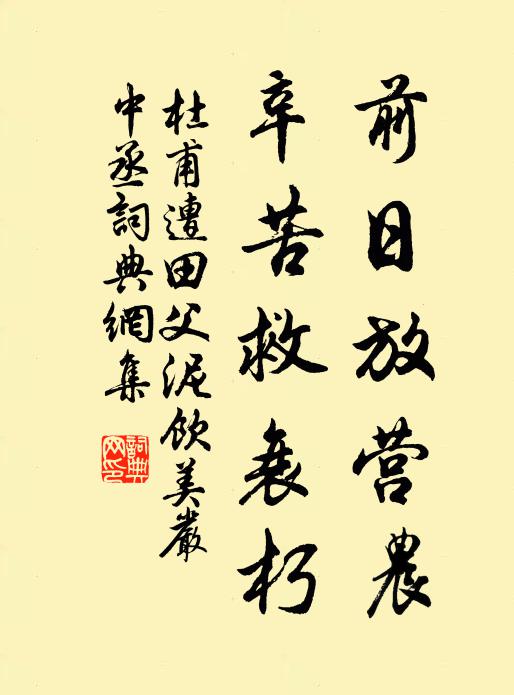 前日放营農
辛苦救衰朽
杜甫遭田父泥飲美嚴
中丞詞典網集
詞典网印